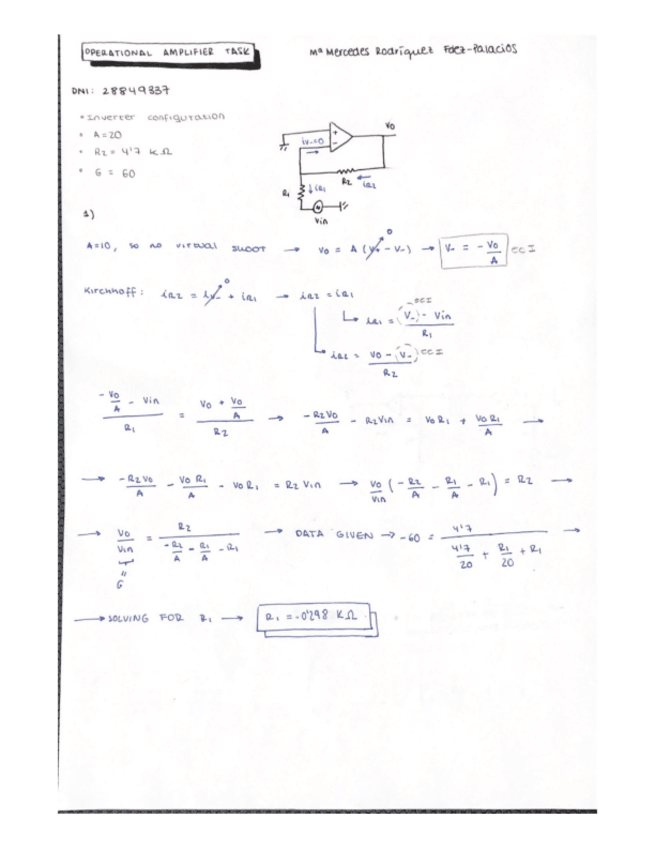 OPERATIONAL AMPLIFIER TASK
Mª Mercedes Rodríguez Fdez-Palacios
DNI: 28849337
• Inverter configuration
• A=20
• R2 = 4'7 KΩ
• G = 60
iv-=0
+
-
Vo
R2
iR2
R1
iR1
Vin
1)
A=10, so no virtual shoot → Vo = A (V+ - V-) → V- = - Vo/A
0
Kirchhoff: iR2 = iv- + iR1 → iR2 = iR1
0
iR1 = (V-) - Vin / R1
iR2 = Vo - (V-) / R2
(-Vo/A - Vin) / R1 = (Vo + Vo/A) / R2 → -R2Vo/A - R2Vin = VoR1 + VoR1/A →
→ -R2Vo/A - VoR1/A - VoR1 = R2Vin → Vo/Vin (-R2/A - R1/A - R1) = R2 →
→ Vo/Vin = R2 / (-R2/A - R1/A - R1) → DATA GIVEN → -60 = 4'7 / (4'7/20 + R1/20 + R1) →
"
G
→ SOLVING FOR R1 → R1 = -0'298 KΩ